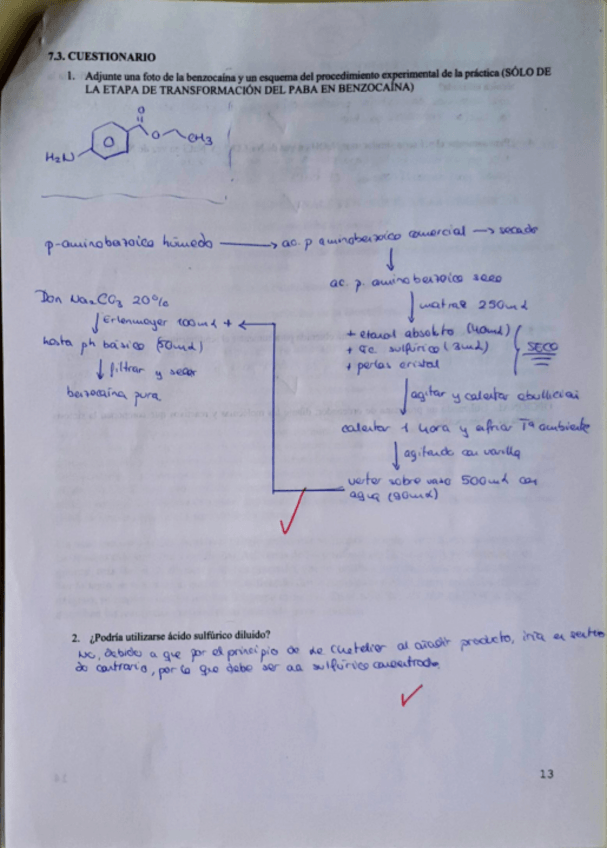 7.3. CUESTIONARIO
1. Adjunte una foto de la benzocaína y un esquema del procedimiento experimental de la práctica (SÓLO DE
LA ETAPA DE TRANSFORMACIÓN DEL PABA EN BENZOCAÍNA)
O
O
O
CH3
H2N
p-aminobenzoico húmedo → ac. p aminobenzoico comercial → secado
ac. p. aminobenzoico seco
matraz 250mL
+ etanol absoluto (40mL)
+ ac. sulfúrico (3mL)
+ perlas cristal
SECO
agitar y calentar ebullición
calentar 1 hora y enfriar Tª ambiente
agitando con varilla
verter sobre vaso 500mL con
agua (90mL)
Na2CO3 20%
Erlenmeyer 100mL +
hasta ph básico (50mL)
filtrar y secar
benzocaína pura
2. ¿Podría utilizarse ácido sulfúrico diluido?
No, debido a que por el principio de Le Chatelier al añadir producto, iría en senti
do contrario, por lo que debe ser sulfúrico concentrado
13